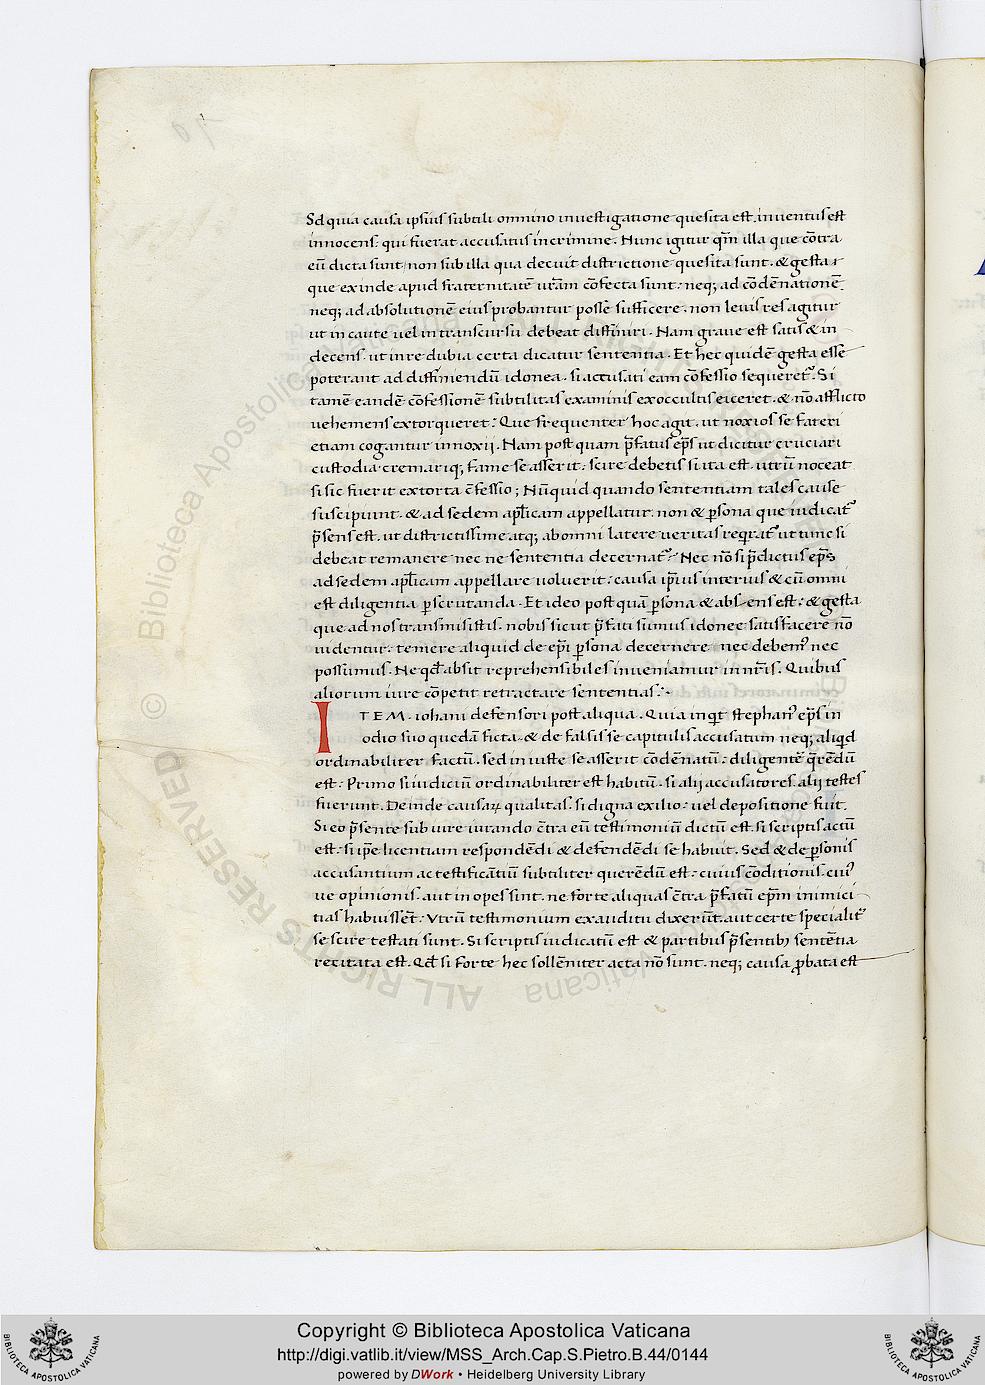 Sd quia causa ipsius subtili omnino inuestigatione quesita est. inuentus est
innocens. qui fuerat accusatus in crimine. Nunc igitur qm̄ illa que cōtra
eū dicta sunt, non sub illa qua decuit districtione quesita sunt. & gesta
que exinde apud fraternitatē urām cōfecta sunt: neq; ad cōdēnationē
neq; ad absolutionē eius probantur posse sufficere. non leuis res agitur
ut incaute uel in transcursu debeat diffiniri. Nam graue est satis & in
decens. ut in re dubia certa dicatur sententia. Et hec quidē gesta esse
poterant ad diffiniendū idonea. si accusati eam cōfessio sequeret᷑. Si
tamē eandē cōfessionē subtilitas examinis ex occultis eiceret. & nō afflicto
uehemens extorqueret: Que frequenter hoc agit. ut noxios se fateri
etiam cogantur innoxii. Nam post quam p̄fatus ep̄s ut dicitur cruciari
custodia cremariq; fame se asserit: scire debetis si ita est. utrū noceat
si sic fuerit extorta c̄fessio; Nūquid quando sententiam tales cause
suscipiunt. & ad sedem ap̄licam appellatur. non & p̱sona que iudicat᷑
p̄sens est. ut districtissime atq; ab omni latere ueritas reqrat᷑ ut tunc si
debeat remanere nec ne sententia decernat᷑? Nec nō si p̄dictus ep̄s
ad sedem ap̄licam appellare uoluerit: causa ip̄ius interius & cū omni
est diligentia p̱scrutanda. Et ideo post quā p̱sona & absens est: & gesta
que ad nos transmisistis. nobis sicut p̄fati sumus idonee satisfacere nō
uidentur. temere aliquid de ep̄i p̱sona decernere nec debem᷒ nec
possumus. Ne qd̄ absit reprehensibiles inueniamur in nr̄is. Quibus
aliorum iure cōpetit retractare sententias:·
ITEM. iohani defensori post aliqua. Quia inqt stephan᷒ ep̄s in
odio suo quedā ficta. & de falsis se capitulis accusatum neq; aliqd
ordinabiliter factū. sed iniuste se asserit cōdēnatū: diligentē q̄rēdū
est: Primo si iudiciū ordinabiliter est habitū. si alij accusatores. alij testes
fuerunt. Deinde causaꝝ qualitas. si digna exilio: uel depositione fuit.
Si eo p̄sente sub iure iurando c̄tra eū testimoniū dictū est. si scriptis actū
est: si ip̄e licentiam respondēdi & defendēdi se habuit. Sed & de p̱sonis
accusantium ac testificātiū subtiliter querēdū est: cuius cōditionis. cui᷒
ue opinionis. aut inopes sint. ne forte aliquas c̄tra p̄fatū ep̄m inimici
tias habuissēt: Vtrū testimonium ex auditu dixerūt. aut certe specialit᷑
se scire testati sunt. Si scriptis iudicatū est & partibus p̄sentib; sentētia
recitata est. Qd̄ si forte hec sollēniter acta nō sunt. neq; causa ꝓbata est
Copyright © Biblioteca Apostolica Vaticana
http://digi.vatlib.it/view/MSS_Arch.Cap.S.Pietro.B.44/0144
powered by DWork • Heidelberg University Library